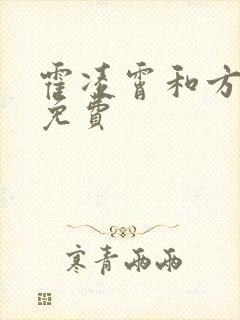 霍凌霄和方
免費
寒青雨雨